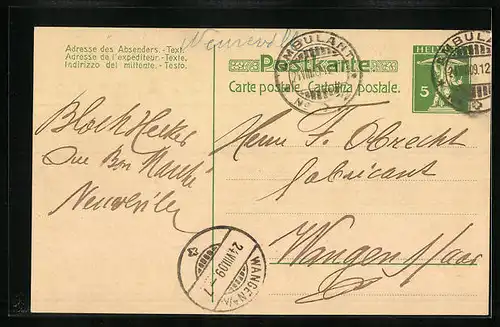 Neureville
AMBULANT
24.VIII.09.12
HELVETIA
AMBULANT
24.VIII.09.12
5
Adresse des Absenders. - Text.
Adresse de l'expéditeur. - Texte.
Indirizzo del mittente. - Testo.
Postkarte
Carte postale. Cartolina postale.
Bloch
Au Bon Marché
Herrn F. Obrecht
fabricant
Wangen
WANGEN A/A
24.VIII.09